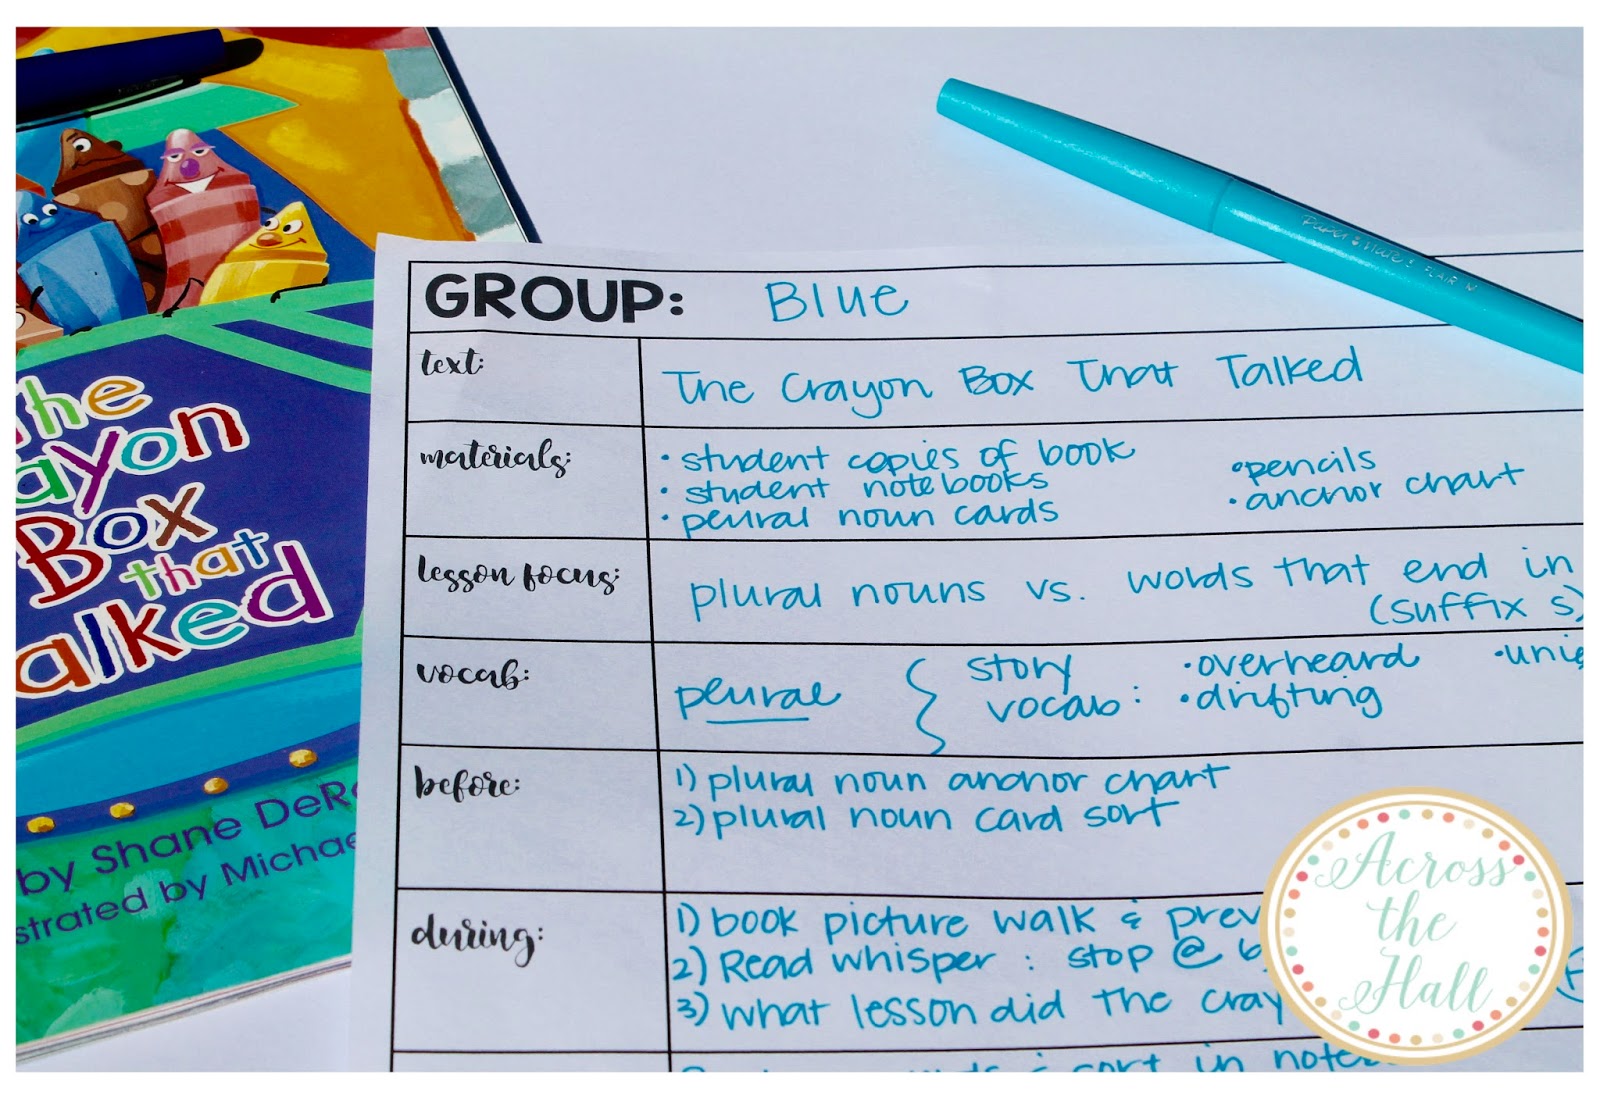 the
ayon
Box
that
alked
by Shane DeRo
strated by Michae
Paper Mate FLAIR
GROUP: Blue
text: The Crayon Box That Talked
materials:
• student copies of book
• student notebooks
• peural noun cards
• pencils
• anchor chart
lesson focus: plural nouns vs. words that end in
(suffix s)
vocab: peurae
story
vocab:
• overheard
• drifting
• uni
before:
1) plural noun anchor chart
2) plural noun card sort
during:
1) book picture walk & prev
2) Read whisper: stop @
3) what lesson did the cray
sort in note
Across
the
Hall